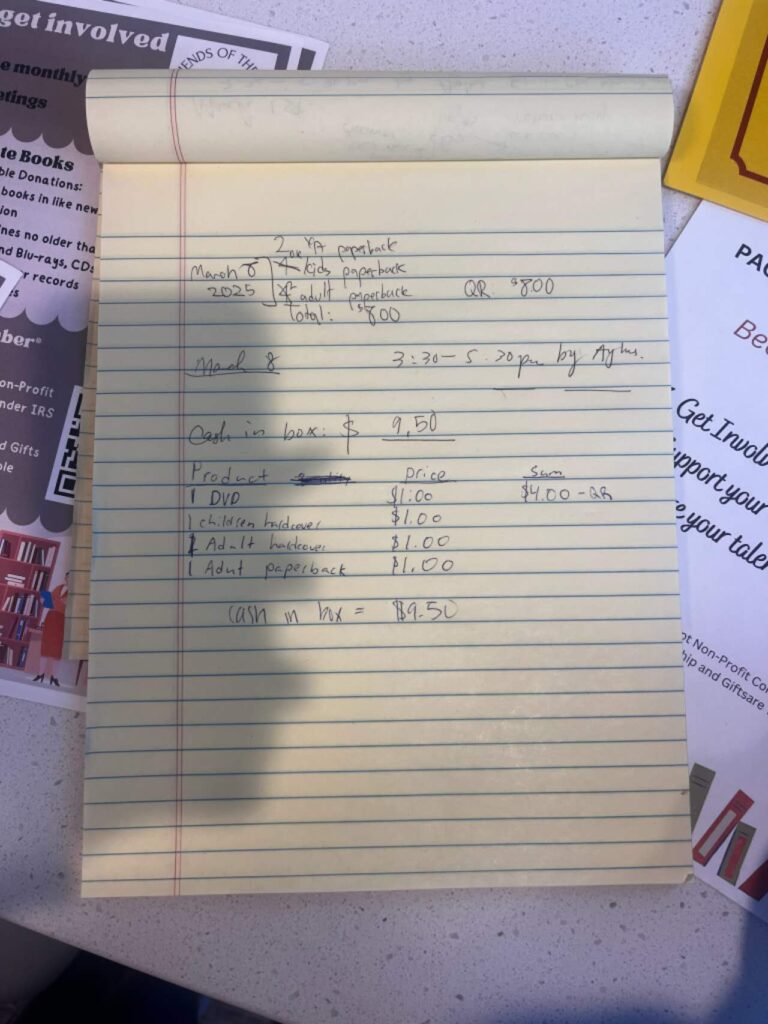 get involved
e monthly
etings
ENDS OF TH
te Books
ble Donations:
books in like new
ion
nes no older tha
nd Blu-rays, CDs
r records
s
ber*
on-Profit
nder IRS
d Gifts
ble
2 YA paperback
kids paperback
March 8
2025
2 adult paperback QR: $800
Total: $800
March 8 3:30 - 5:30 pm by
Cash in box: $ 9.50
Product Price Sum
1 DVD $1.00 $4.00 - QR
1 children hardcover $1.00
1 Adult hardcover $1.00
1 Adut paperback $1.00
cash in box = $9.50
PAC
Bec
Get Invol
upport your
e your talen
ot Non-Profit Co
hip and Giftsare